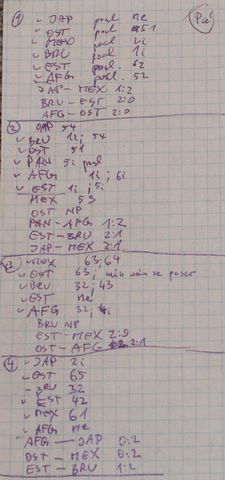 ① JAP posl ne
OST posl 51
MEXO posl 2i
BRU posl 1i
EST posl. 62
AFG posl. 52
JAP-MEX 1:2
BRU-EST 2:0
AFG-OST 2:0
② JAP 54
BRU 1i, 54
OST 51
PAN 5i posl
AFG 1i, 6i
EST 1i, 5i
MEX 53
OST NP
PAN-AFG 1:2
EST-BRU 2:1
JAP-MEX 2:1
③ MEX 63, 64
OST 63, min
BRU 32, 43
EST ne
AFG 32,
BRU NP
EST-MEX 2:0
OST-AFG 2:1
④ JAP 2i
OST 65
BRU 32
EST 42
MEX 61
AFG ne
AFG-JAP 0:2
OST-MEX 0:2
EST-BRU 1:2